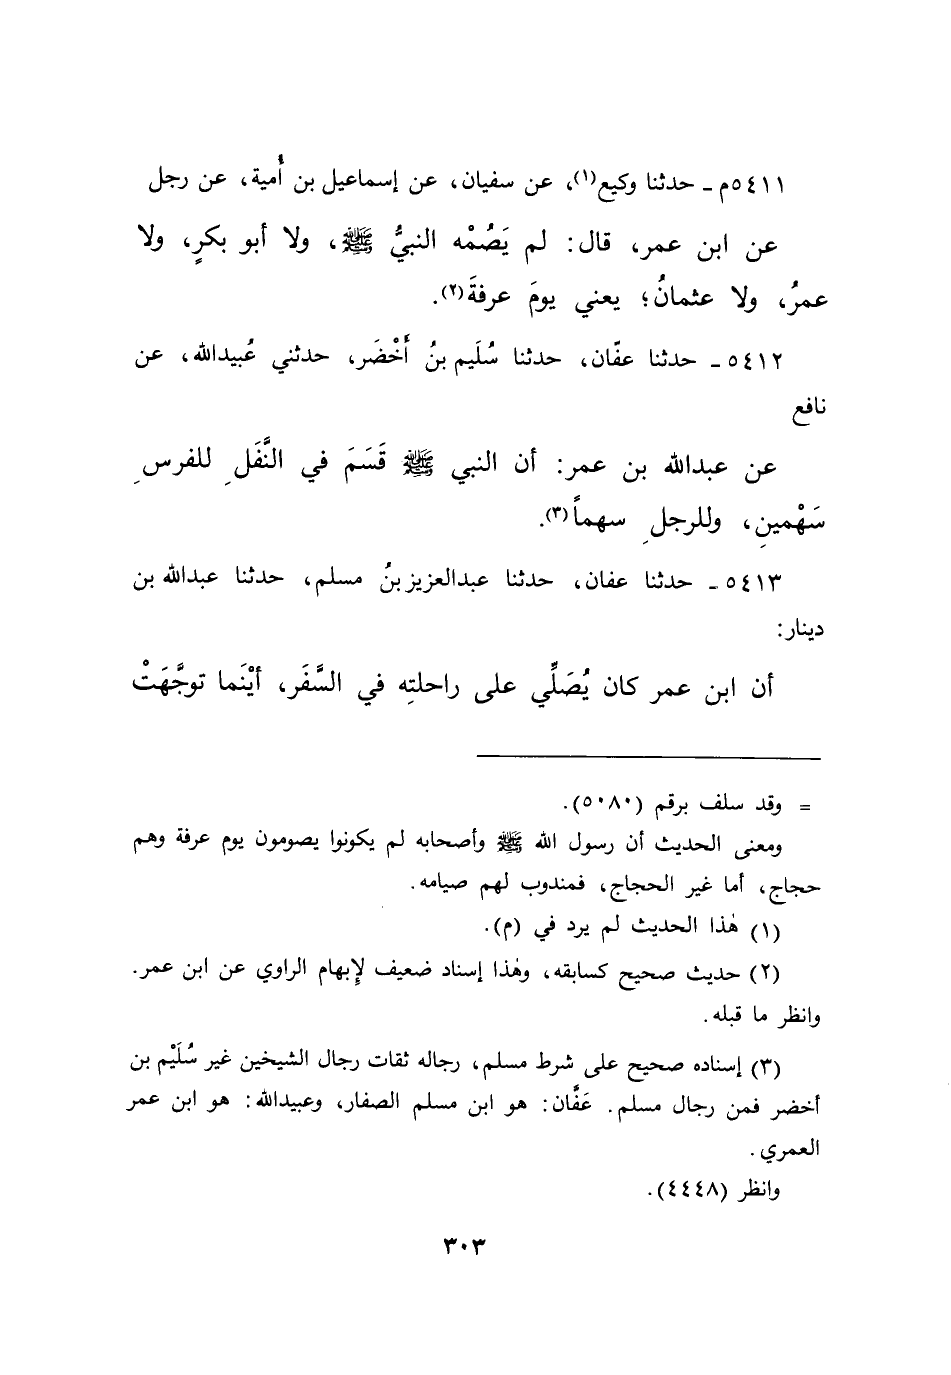 ٥٤١١م ـ حدثنا وكيع(١)، عن سفيان، عن إسماعيل بن أُمية، عن رجل
عن ابن عمر، قال: لم يَصُمْه النبيُّ ﷺ، ولا أبو بكرٍ، ولا
عمرُ، ولا عثمانُ؛ يعني يومَ عرفةَ(٢).
٥٤١٢ ـ حدثنا عفّان، حدثنا سُلَيم بنُ أَخْضَر، حدثني عُبيدالله، عن
نافع
عن عبدالله بن عمر: أن النبي ﷺ قَسَمَ في النَّفَلِ للفرسِ
سَهْمينِ، وللرجلِ سهماً(٣).
٥٤١٣ ـ حدثنا عفان، حدثنا عبدالعزيز بنُ مسلم، حدثنا عبدالله بن
دينار:
أن ابن عمر كان يُصَلِّي على راحلتِه في السَّفَر، أيْنَما توجَّهَتْ
= وقد سلف برقم (٥٠٨٠).
ومعنى الحديث أن رسول الله ﷺ وأصحابه لم يكونوا يصومون يوم عرفة وهم
حجاج، أما غير الحجاج، فمندوب لهم صيامه.
(١) هٰذا الحديث لم يرد في (م).
(٢) حديث صحيح كسابقه، وهٰذا إسناد ضعيف لإبهام الراوي عن ابن عمر.
وانظر ما قبله.
(٣) إسناده صحيح على شرط مسلم، رجاله ثقات رجال الشيخين غير سُلَيْم بن
أخضر فمن رجال مسلم. عَفَّان: هو ابن مسلم الصفار، وعبيدالله: هو ابن عمر
العمري.
وانظر (٤٤٤٨).
٣٠٣